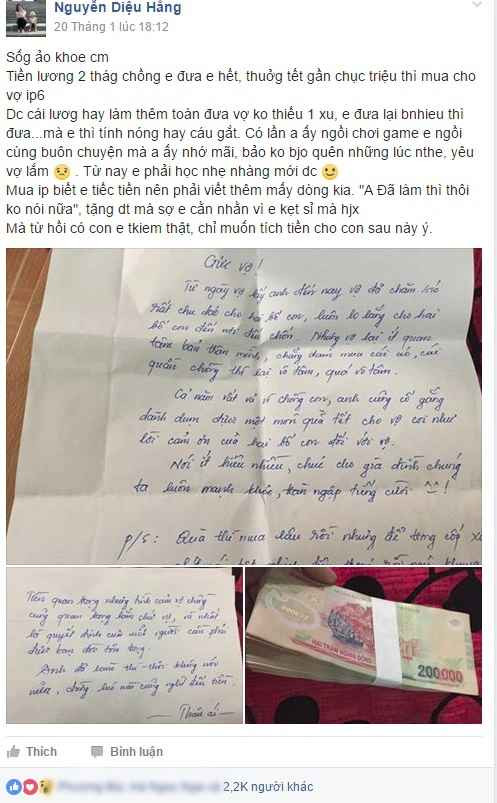 Nguyễn Diệu Hằng
20 Tháng 1 lúc 18:12
Sốg ảo khoe cm
Tiền lương 2 thág chồng e đưa e hết, thuởg tết gần chục triệu thì mua cho
vợ ip6
Dc cái lươg hay làm thêm toàn đưa vợ ko thiếu 1 xu, e đưa lại bnhieu thì
đưa...mà e thì tính nóng hay cáu gắt. Có lần a ấy ngồi chơi game e ngồi
cùng buôn chuyện mà a ấy nhớ mãi, bảo ko bjo quên những lúc nthe, yêu
vợ lắm 😣 . Từ nay e phải học nhẹ nhàng mới dc 😉
Mua ip biết e tiếc tiền nên phải viết thêm mấy dòng kia. "A Đã làm thì thôi
ko nói nữa", tặng dt mà sợ e cằn nhằn vì e kẹt sỉ mà hjx
Mà từ hồi có con e tkiem thật, chỉ muốn tích tiền cho con sau này ý.
Gửi vợ!
Từ ngày vợ lấy anh đến nay vợ đã chăm sóc
rất chu đáo cho hai bố con, luôn lo lắng cho hai
bố con đến nơi đến chốn. Nhưng vợ lại ít quan
tâm bản thân mình, chẳng dám mua cái áo, cái
quần chồng thì lại vô tâm, quá vô tâm.
Cả năm vất vả vì chồng con, anh cũng cố gắng
dành dụm được một món quà tết cho vợ coi như
lời cảm ơn của hai bố con đối với vợ.
Nói ít hiểu nhiều, chúc cho gia đình chúng
ta luôn mạnh khỏe, tràn ngập tiếng cười ^^!
p/s: Quà thì mua lâu rồi nhưng để trong cốp xe
Tiền quan trọng nhưng tình cảm vợ chồng
cũng quan trọng lắm chứ vợ, và nhất
là quyết định của mỗi người cần phải
được bạn đời tôn trọng.
Anh đã làm thì thôi không nói
nữa, đừng lúc nào cũng nghĩ đến tiền.
Thân ái
200000
HAI TRĂM NGHÌN ĐỒNG
200.000
Thích
Bình luận
2,2K người khác